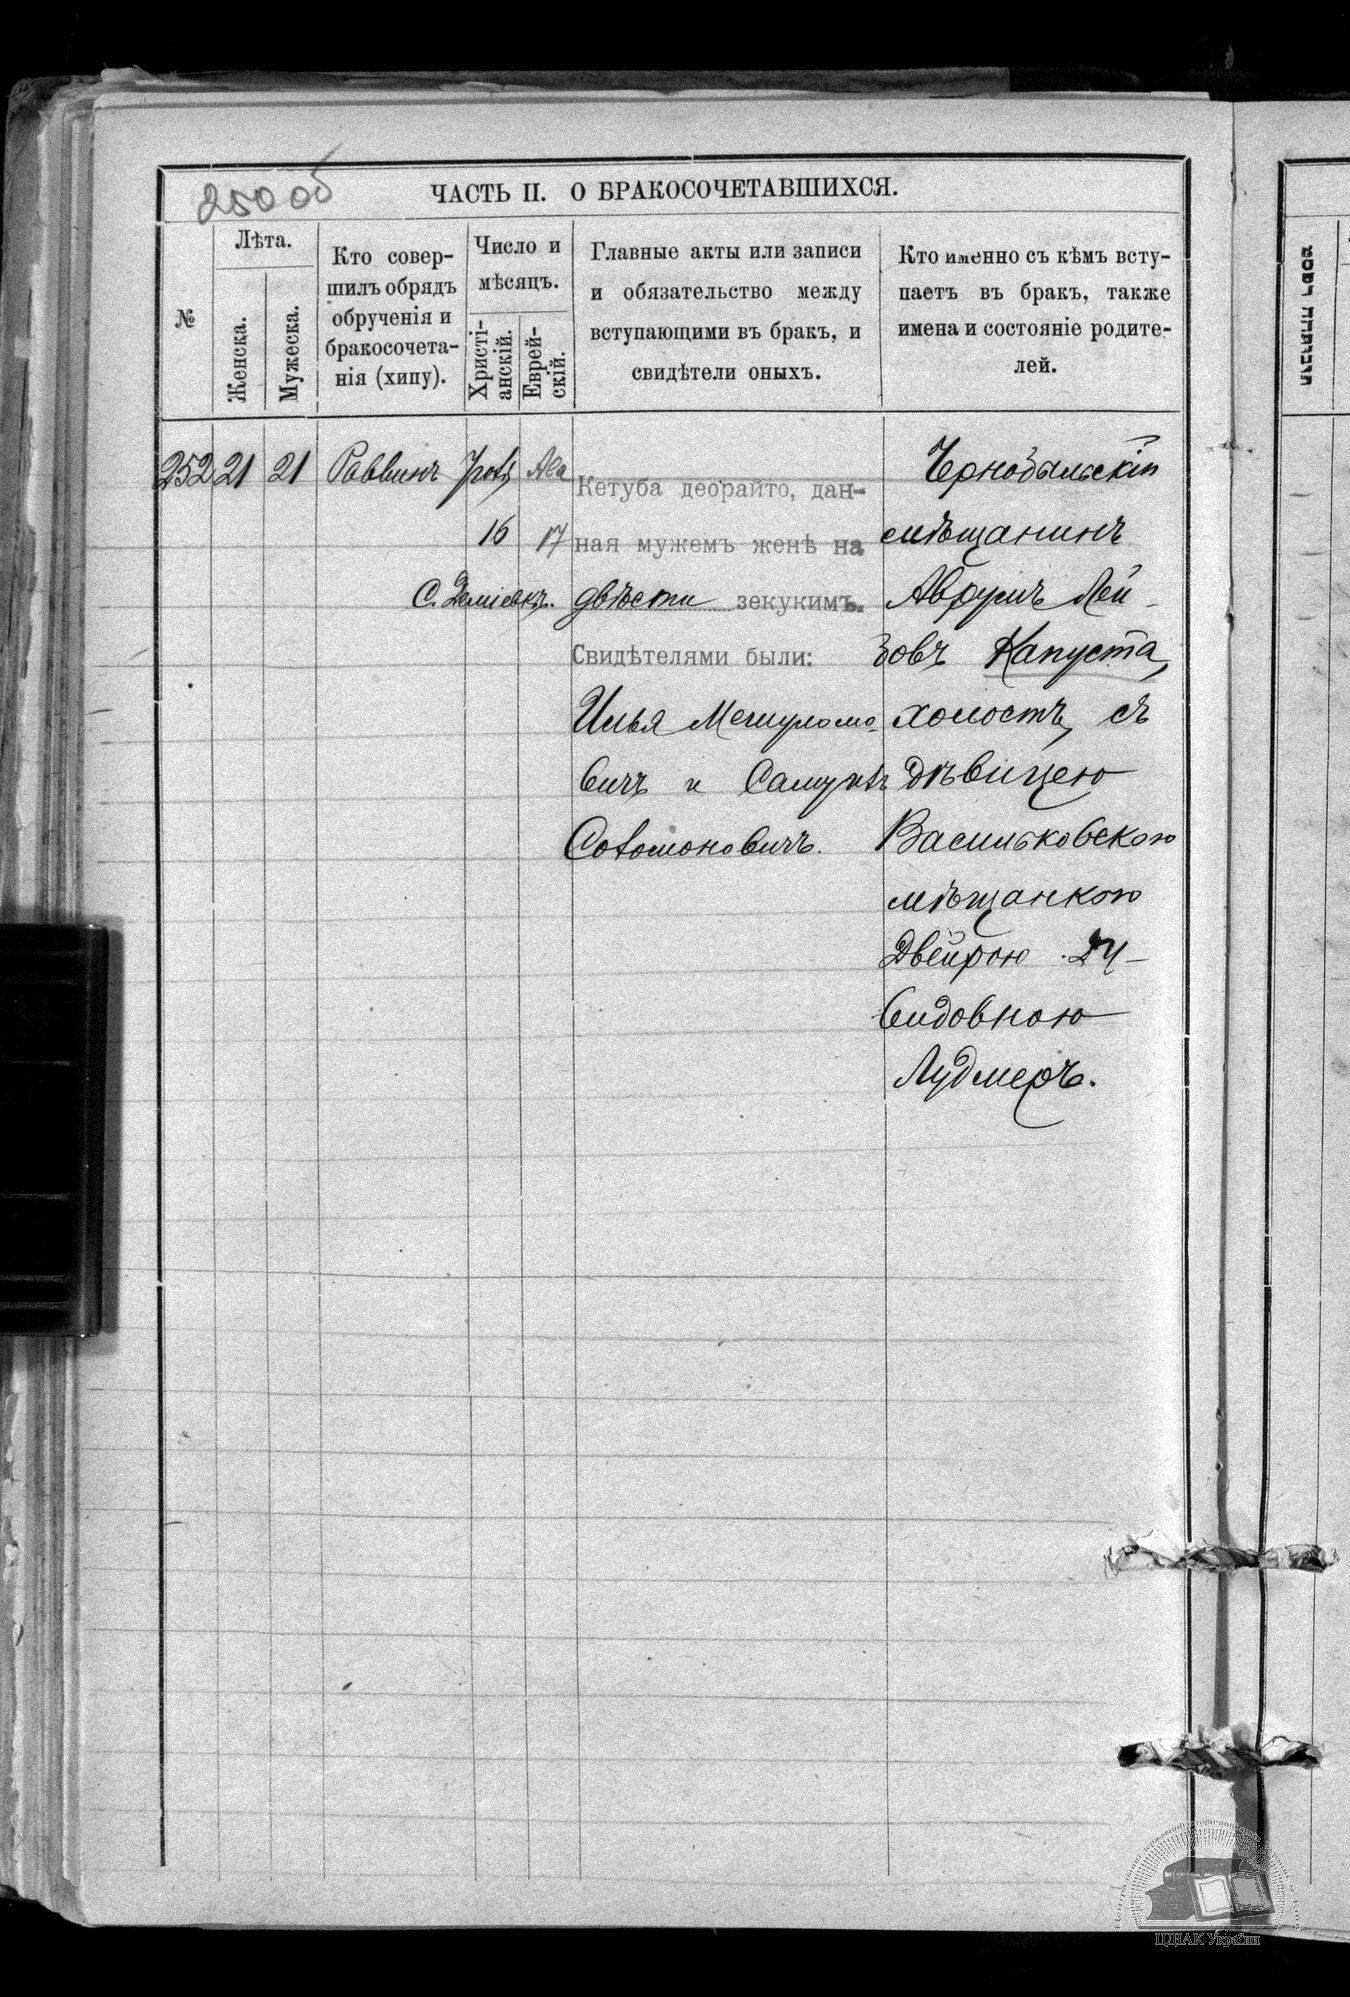 250 об
ЧАСТЬ II. О БРАКОСОЧЕТАВШИХСЯ.
№
Лѣта.
Женска.
Мужеска.
Кто совер-
шилъ обрядъ
обрученія и
бракосочета-
нія (хипу).
Число и
мѣсяцъ.
Христі-
анскій.
Еврей-
скій.
Главные акты или записи
и обязательство между
вступающими въ бракъ, и
свидѣтели оныхъ.
Кто именно съ кѣмъ всту-
паетъ въ бракъ, также
имена и состояніе родите-
лей.
252 21 21 Раввинъ
16 17
С. Деміевкѣ.
Кетуба деорайто, дан-
ная мужемъ женѣ на
двѣсти зекукимъ.
Свидѣтелями были:
Илья Мешуломо-
вичъ и
Соломоновичъ.
Чернобыльскій
мѣщанинъ
Аврумъ Лей-
зовъ Капуста,
холостъ, съ
дѣвицею
Васильковскою
мѣщанкою
Двейрою Ду-
видовною
Лудмеръ.
ЦДІАК України